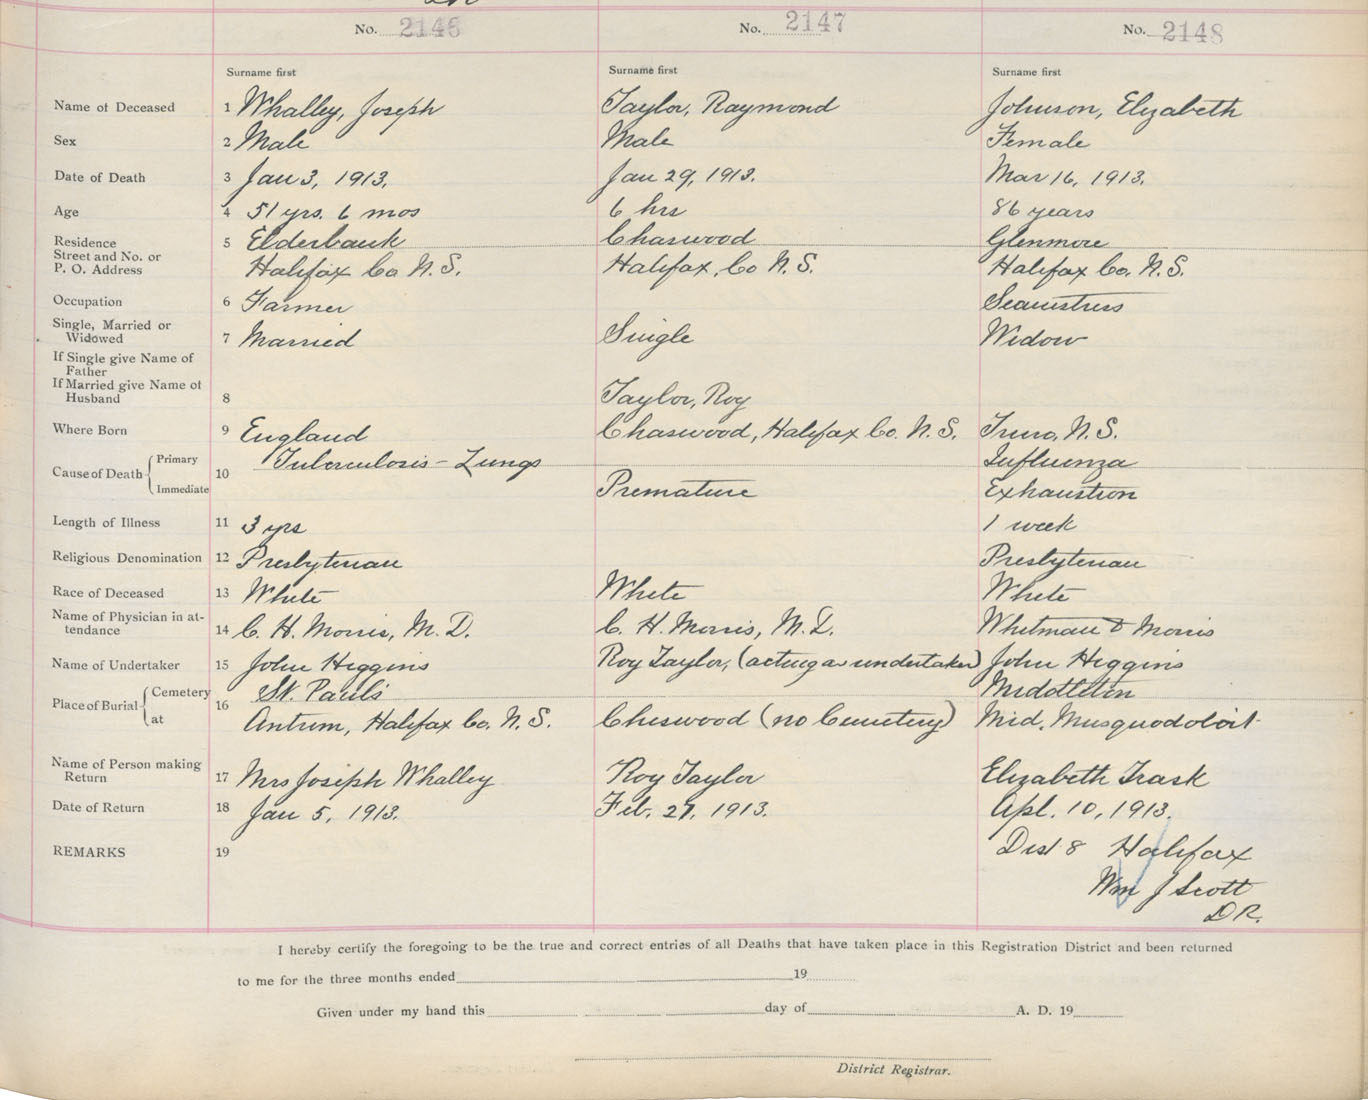 No. 2146 No. 2147 No. 2148
Surname first Surname first Surname first
Name of Deceased 1 Whalley, Joseph Taylor, Raymond Johnson, Elizabeth
Sex 2 Male Male Female
Date of Death 3 Jan 3, 1913. Jan 29, 1913. Mar 16, 1913.
Age 4 51 yrs. 6 mos 6 hrs 86 years
Residence 5 Elderbank Chaswood Glenmore
Street and No. or
P. O. Address Halifax Co N.S. Halifax, Co N.S. Halifax Co. N.S.
Occupation 6 Farmer Seamstress
Single, Married or
Widowed 7 Married Single Widow
If Single give Name of
Father
If Married give Name of
Husband 8 Taylor, Roy
Where Born 9 England Chaswood, Halifax Co. N.S. Truro, N.S.
Cause of Death Primary 10 Tuberculosis - Lungs Influenza
Immediate Premature Exhaustion
Length of Illness 11 3 yrs 1 week
Religious Denomination 12 Presbyterian Presbyterian
Race of Deceased 13 White White White
Name of Physician in at-
tendance 14 C. H. Morris, M.D. C. H. Morris, M.D. Whitman & Morris
Name of Undertaker 15 John Higgins Roy Taylor, (acting as undertaker) John Higgins
Place of Burial Cemetery 16 St. Paul's Middleton
at Antrim, Halifax Co. N.S. Cheswood (no Cemetery) Mid. Musquodoboit
Name of Person making
Return 17 Mrs Joseph Whalley Roy Taylor Elizabeth Trask
Date of Return 18 Jan 5, 1913. Feb. 27, 1913. Apl. 10, 1913.
REMARKS 19 Dist 8 Halifax
Wm J Scott
D.R.
I hereby certify the foregoing to be the true and correct entries of all Deaths that have taken place in this Registration District and been returned
to me for the three months ended 19
Given under my hand this day of A. D. 19
District Registrar.